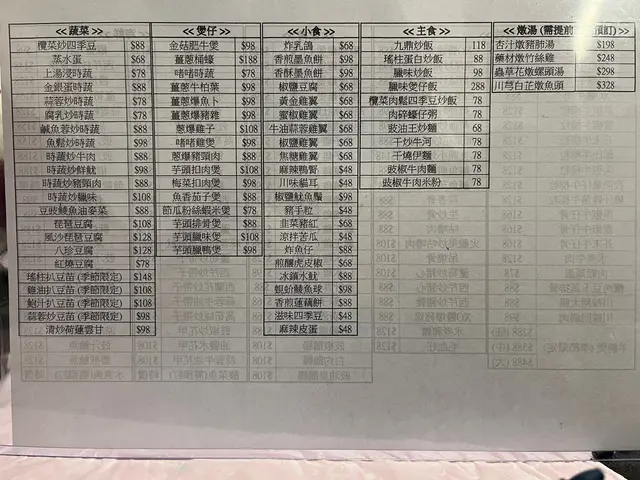 << 蔬菜 >>
欖菜炒四季豆 $88
蒸水蛋 $68
上湯浸時蔬 $78
金銀蛋時蔬 $88
蒜蓉炒時蔬 $78
腐乳炒時蔬 $78
鹹魚蓉炒時蔬 $88
魚鬆炒時蔬 $98
時蔬炒牛肉 $88
時蔬炒鮮魷 $98
時蔬炒豬頸肉 $88
時蔬炒臘味 $98
豆豉鯪魚油麥菜 $88
琵琶豆腐 $108
風沙琵琶豆腐 $128
八珍豆腐 $128
紅燒豆腐 $78
瑤柱扒豆苗 (季節限定) $148
雞油扒豆苗 (季節限定) $108
鮑汁扒豆苗 (季節限定) $108
蒜蓉炒豆苗 (季節限定) $98
清炒荷蓮雲甘 $98
<< 煲仔 >>
金菇肥牛煲 $98
薑蔥桶蠔 $188
啫啫時蔬 $78
薑蔥牛柏葉 $98
薑蔥爆魚卜 $98
薑蔥爆豬雜 $98
蔥爆雞子 $108
啫啫雞煲 $98
蔥爆豬頸肉 $88
芋頭扣肉煲 $108
梅菜扣肉煲 $98
魚香茄子煲 $88
節瓜粉絲蝦米煲 $78
芋頭排骨煲 $88
芋頭臘味煲 $108
芋頭臘鴨煲 $98
<< 小食 >>
炸乳鴿 $68
香煎墨魚餅 $98
香酥墨魚餅 $98
椒鹽豆腐 $68
黃金雞翼 $68
蜜椒雞翼 $68
牛油蒜蓉雞翼 $68
椒鹽雞翼 $68
焦糖雞翼 $68
麻辣鴨腎 $48
川味貓耳 $48
椒鹽魷魚鬚 $98
豬手粒 $48
韭菜豬紅 $68
涼拌苦瓜 $48
炸魚仔 $88
煎釀虎皮椒 $68
冰鎮水魷 $88
蜆蚧鯪魚球 $98
香煎蓮藕餅 $68
滋味四季豆 $48
麻辣皮蛋 $48
<< 主食 >>
九鼎炒飯 118
瑤柱蛋白炒飯 88
臘味炒飯 98
臘味煲仔飯 288
欖菜肉鬆四季豆炒飯 78
肉碎蠔仔粥 78
豉油王炒麵 68
干炒牛河 78
干燒伊麵 78
豉椒牛肉麵 78
豉椒牛肉米粉 78
<< 燉湯 (需提前 預訂)
杏汁燉豬肺湯 $198
藥材燉竹絲雞 $248
蟲草花燉螺頭湯 $298
川芎白芷燉魚頭 $328